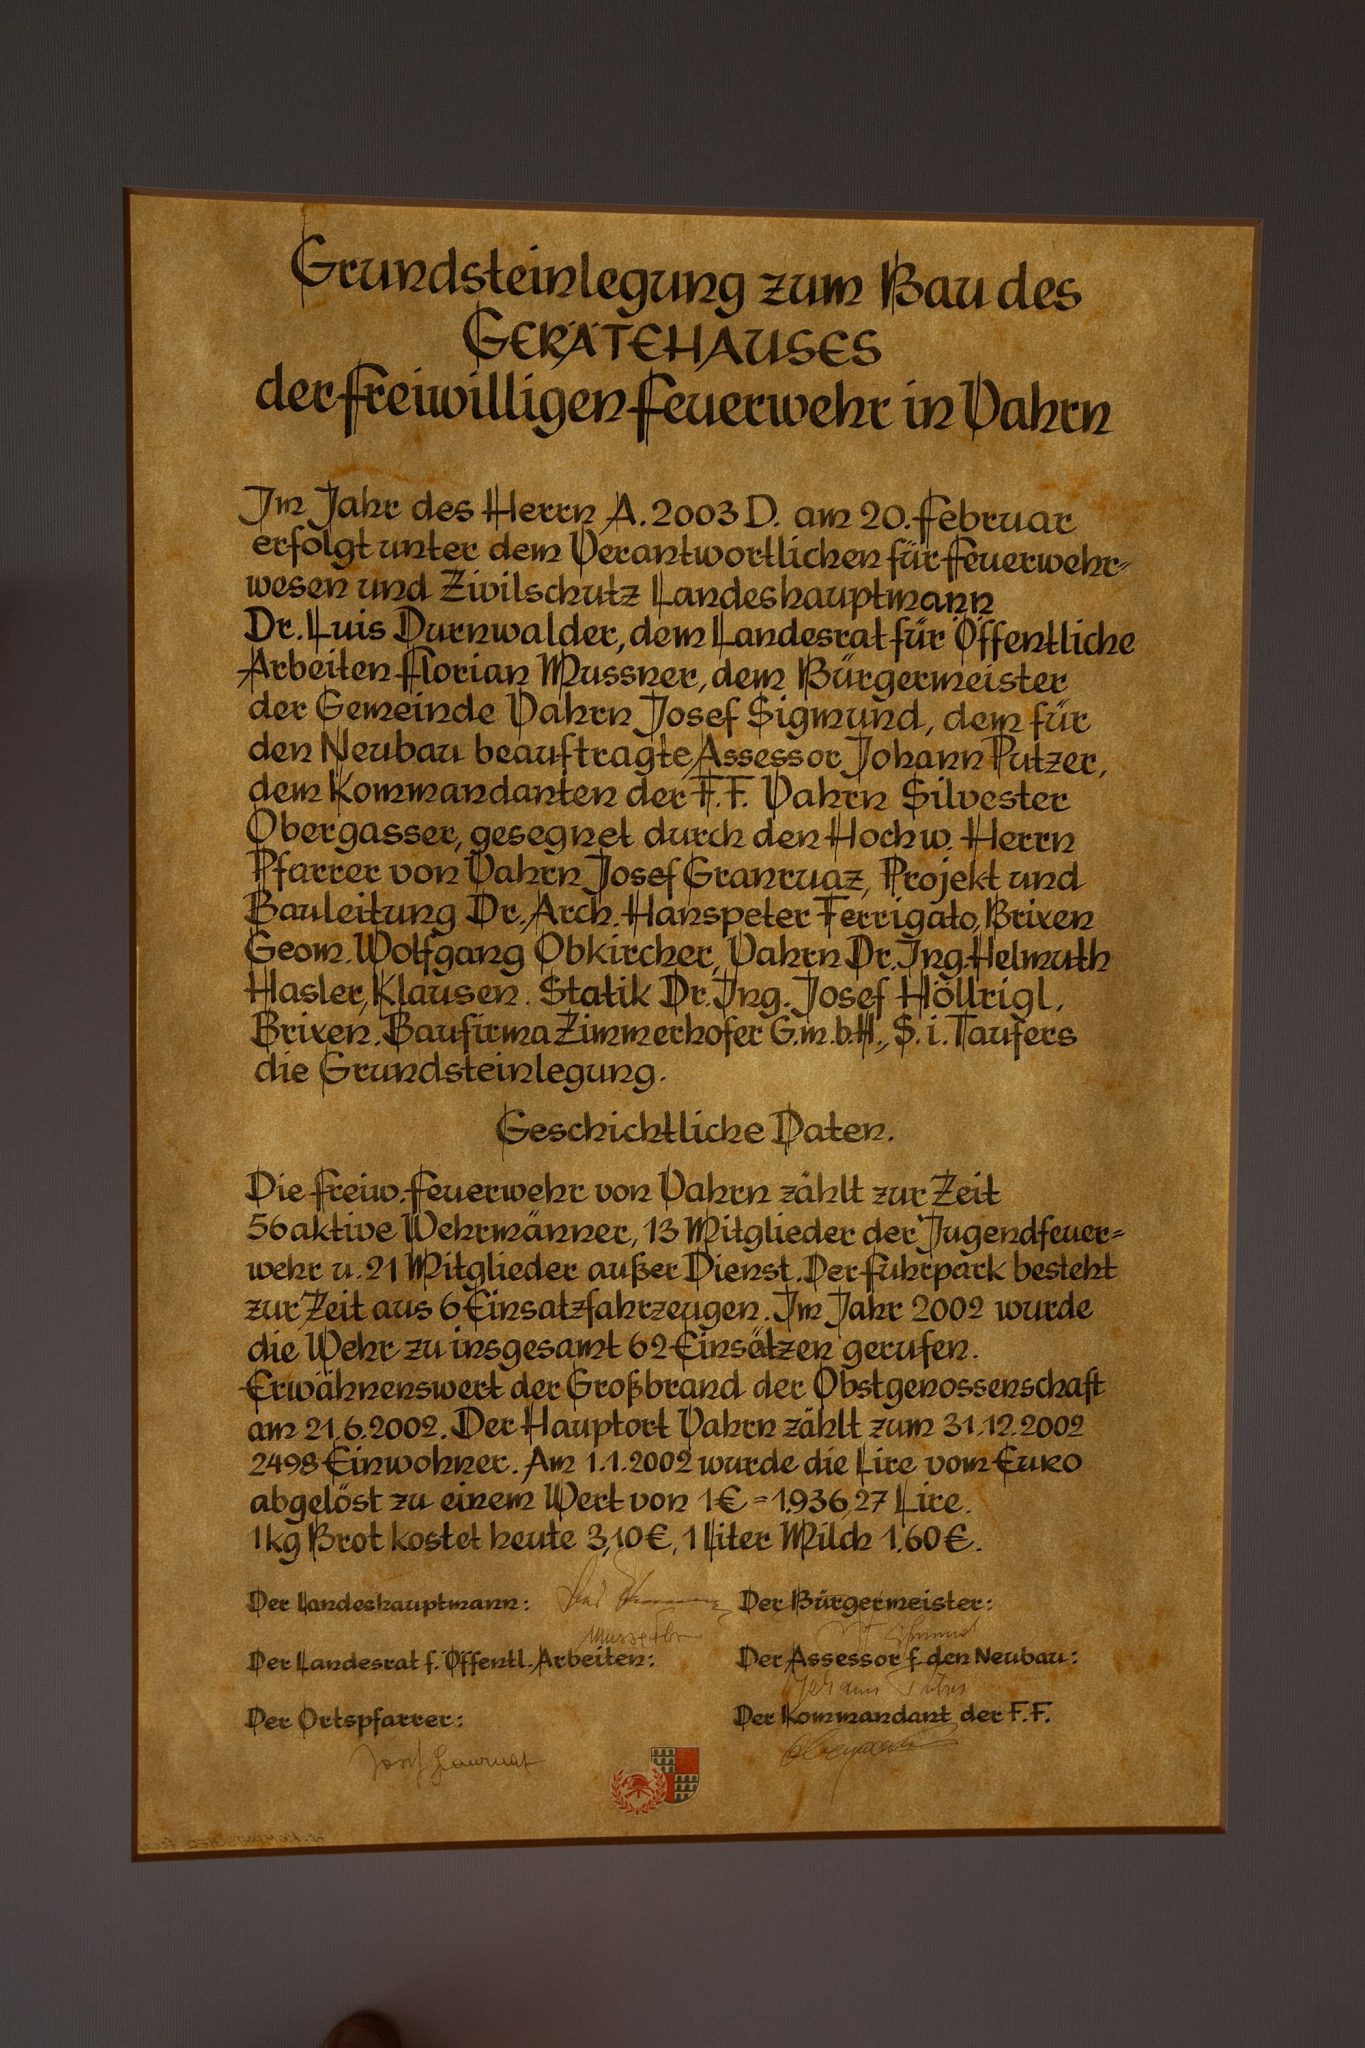 Grundsteinlegung zum Bau des
GERÄTEHAUSES
der freiwilligen Feuerwehr in Vahrn
Im Jahr des Herrn A. 2003 D. am 20. Februar
erfolgt unter dem Verantwortlichen für Feuerwehr=
wesen und Zivilschutz Landeshauptmann
Dr. Luis Durnwalder, dem Landesrat für Öffentliche
Arbeiten Florian Mussner, dem Bürgermeister
der Gemeinde Vahrn Josef Sigmund, dem für
den Neubau beauftragte Assessor Johann Putzer,
dem Kommandanten der F.F. Vahrn Silvester
Obergasser, gesegnet durch den Hochw. Herrn
Pfarrer von Vahrn Josef Granruaz, Projekt und
Bauleitung Dr. Arch. Hanspeter Ferrigato, Brixen
Geom. Wolfgang Obkircher, Vahrn Dr. Ing. Helmuth
Hasler, Klausen. Statik Dr. Ing. Josef Höllrigl,
Brixen. Baufirma Zimmerhofer G.m.b.H., S. i. Taufers
die Grundsteinlegung.
Geschichtliche Daten.
Die freiw. Feuerwehr von Vahrn zählt zur Zeit
56 aktive Wehrmänner, 13 Mitglieder der Jugendfeuer=
wehr u. 21 Mitglieder außer Dienst. Der Fuhrpark besteht
zur Zeit aus 6 Einsatzfahrzeugen. Im Jahr 2002 wurde
die Wehr zu insgesamt 62 Einsätzen gerufen.
Erwähnenswert der Großbrand der Obstgenossenschaft
am 21.6.2002. Der Hauptort Vahrn zählt zum 31.12.2002
2498 Einwohner. Am 1.1.2002 wurde die Lire vom Euro
abgelöst zu einem Wert von 1 € = 1.936,27 Lire.
1 kg Brot kostet heute 3,10 €, 1 Liter Milch 1,60 €.
Der Landeshauptmann: Der Bürgermeister:
Der Landesrat f. Öffentl. Arbeiten: Der Assessor f. den Neubau:
Johann Putzer
Der Ortspfarrer: Der Kommandant der F.F.
Josef Granruaz